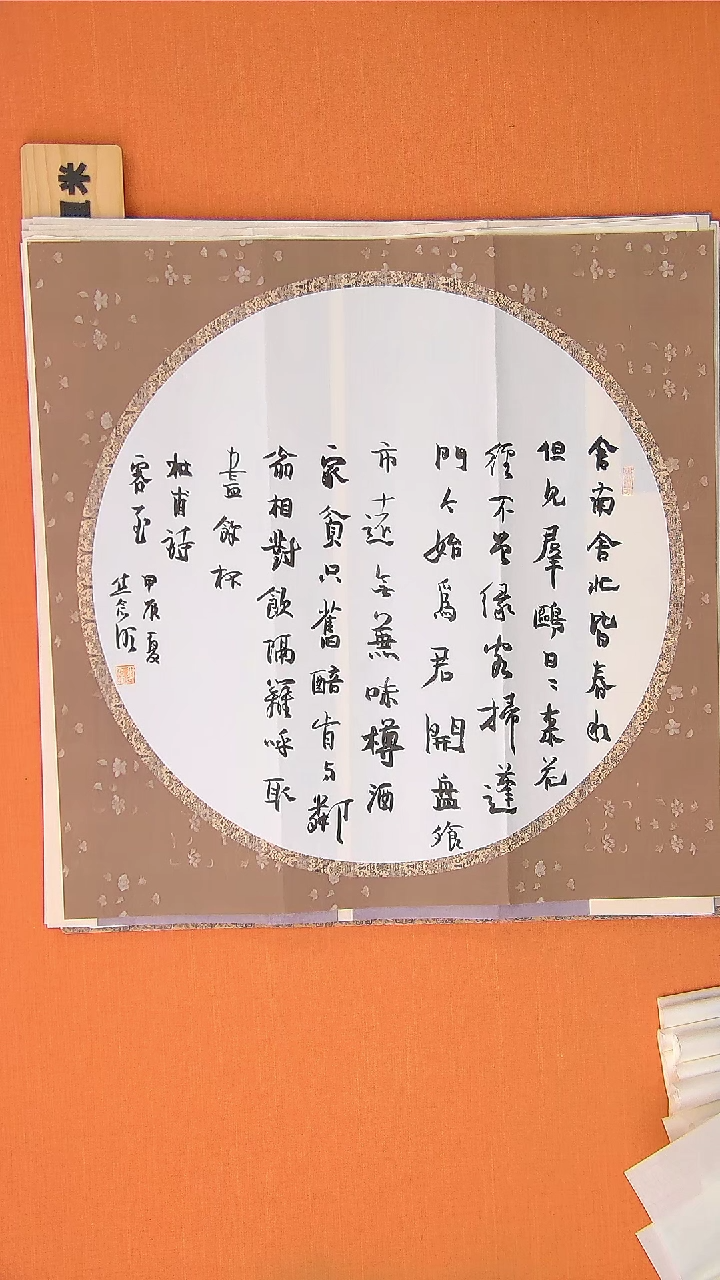 舍南舍北皆春水
但見羣鷗日〻來花
徑不曾緣客掃蓬
門今始爲君開盤飧
市遠無兼味樽酒
家貧只舊醅肯与鄰
翁相對飲隔籬呼取
盡餘杯
杜甫詩
客至
甲辰夏
米